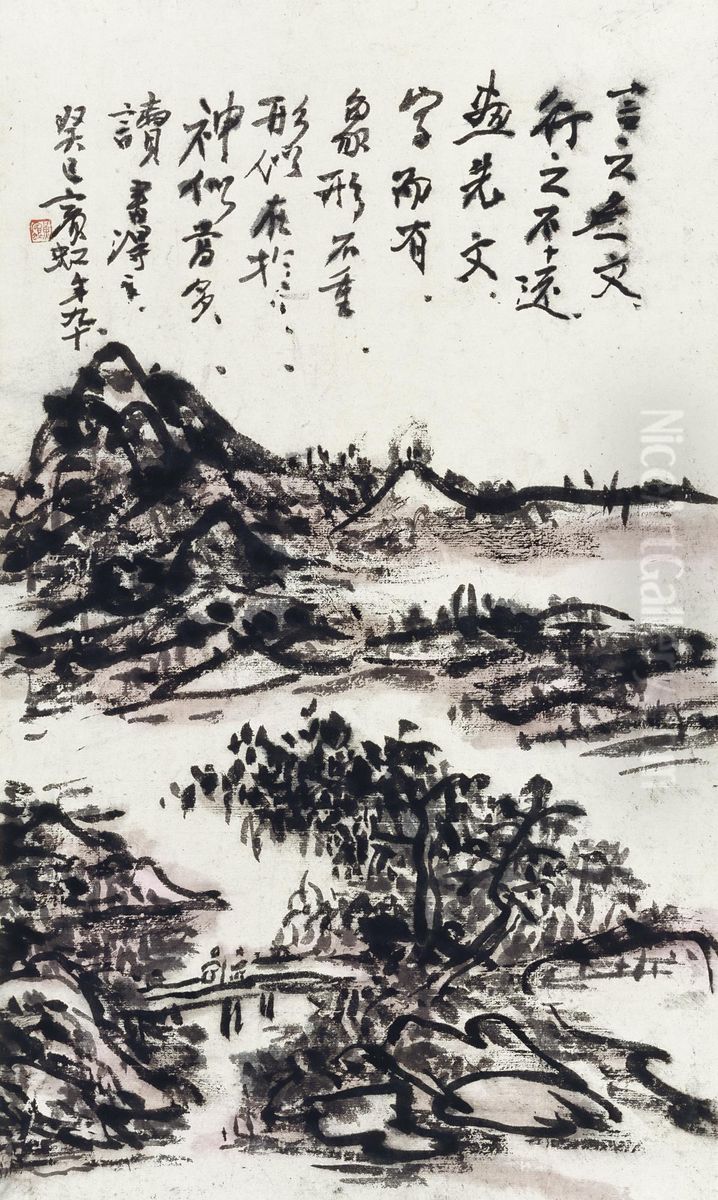 言之無文
行之不遠
畫先文
字而有
象形不重
形似在於
神似多
讀書得之
癸巳賓虹年九十
NiceArtGallery.com